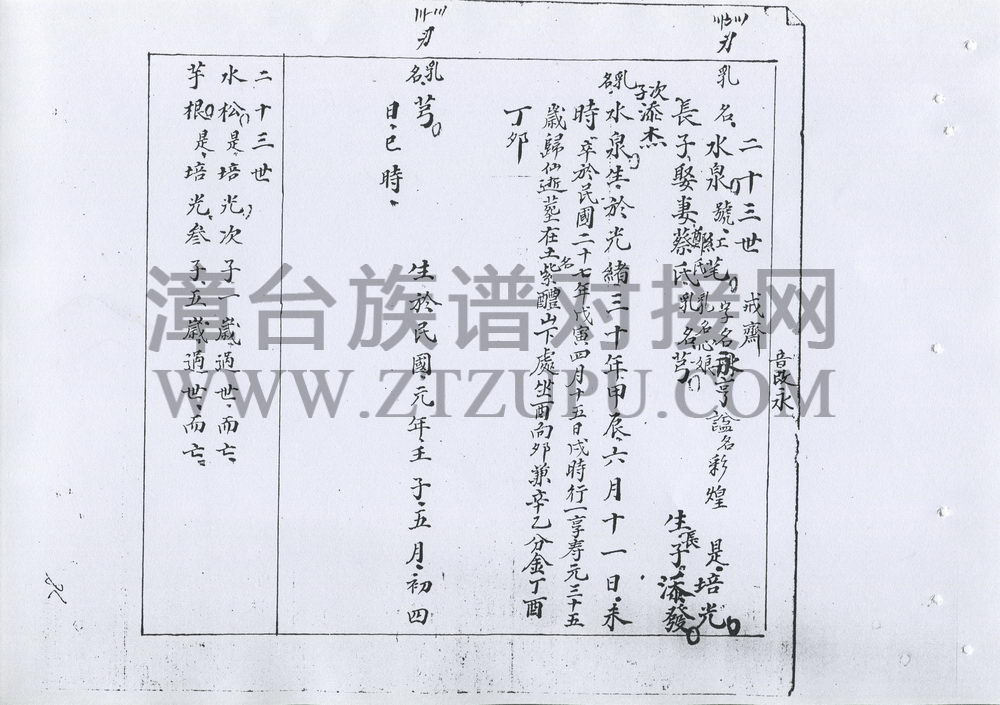 音改永
二十三世 戒齋
乳名水泉號紅笔字名永亨謚名彩煌 是培光
長子娶妻蔡氏乳名芎 生長子添發
鄭氏乳名心娘
次子添杰
乳名水泉生於光緒三十年甲辰六月十一日未
時卒於民國二十七年戊寅四月十五日戌時行一享寿元三十五
歲歸仙逝葬在土名紫醴山下處坐酉向夘兼辛乙分金丁酉
丁夘
乳名芎 生於民國元年壬子五月初四
日巳時
二十三世
水松是培光次子一歲過世而亡
芋根是培光叁子五歲過世而亡
漳台族谱对接网
WWW.ZTZUPU.COM